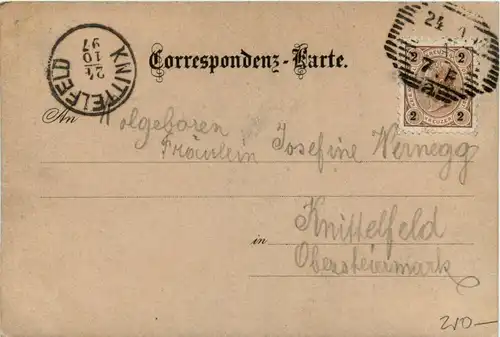 KNITTELFELD
24
10
97
Correspondenz-Karte.
24
7. F
2 KREUZER 2
2 2
An Wolgeboren
Fräulein Josefine Wernegg
Knittelfeld
in Obersteiermark
210—